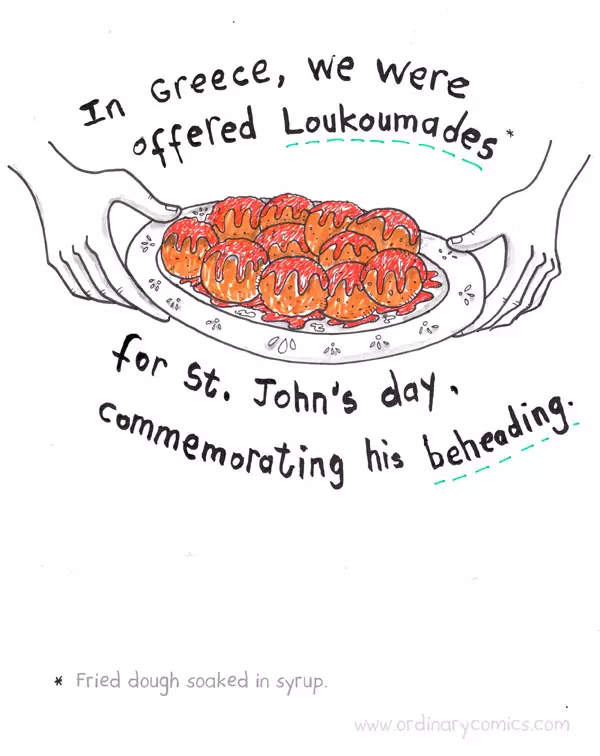 In Greece, we were
offered Loukoumades*
for St. John's day,
commemorating his beheading.
* Fried dough soaked in syrup.
www.ordinarycomics.com